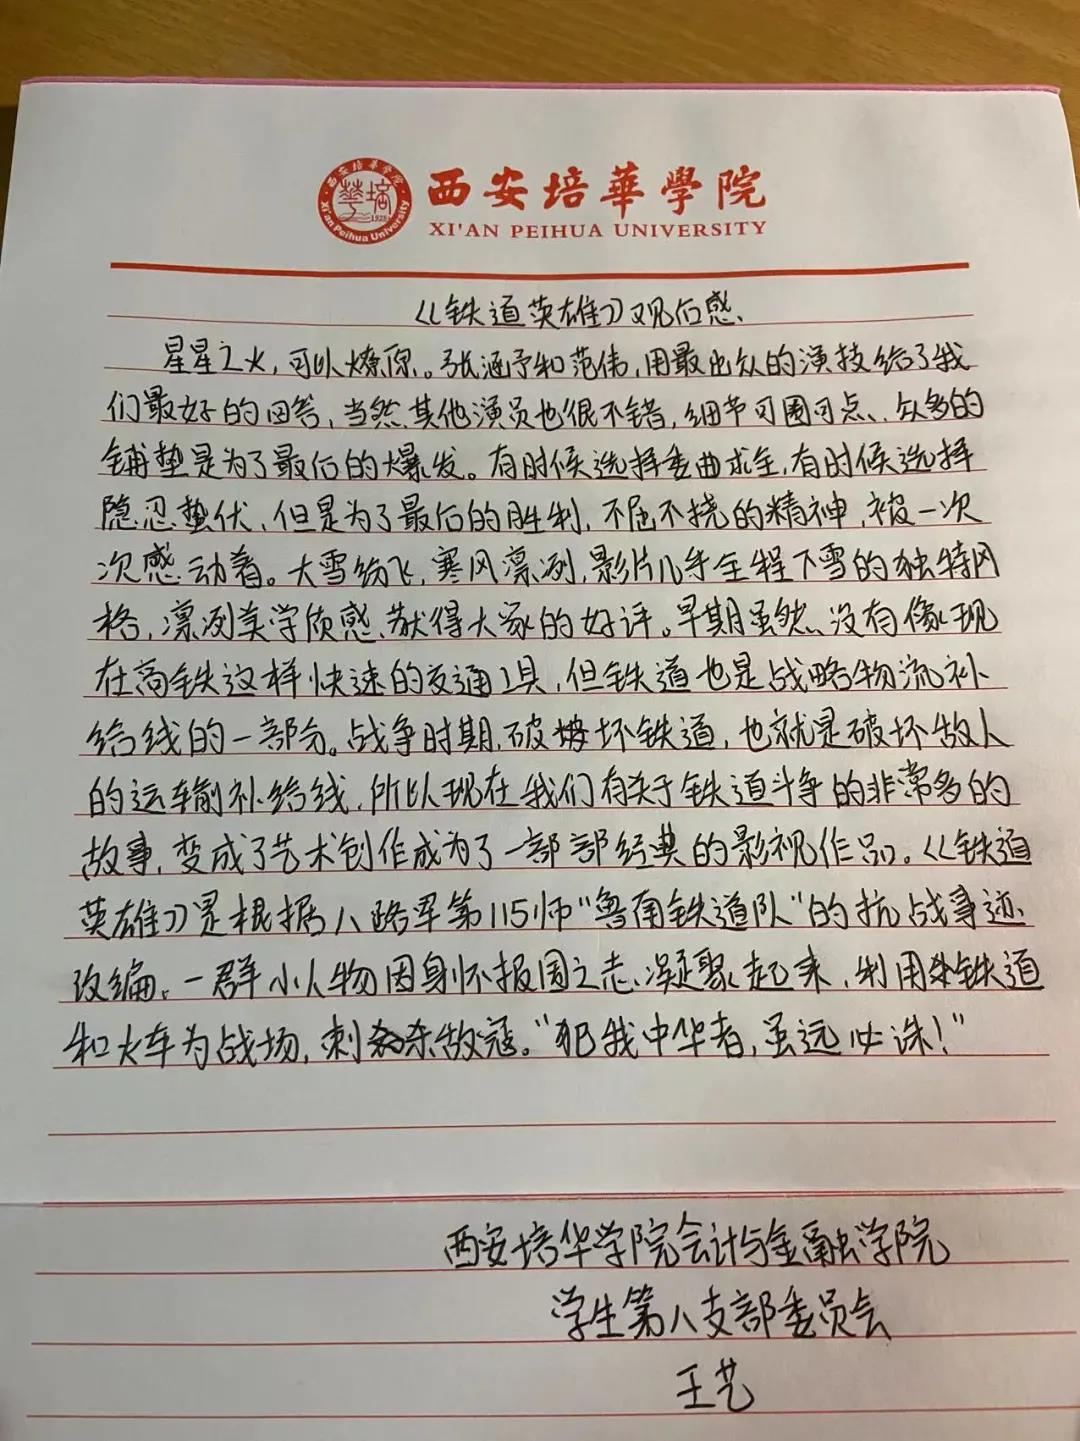 西安培華學院
XI'AN PEIHUA UNIVERSITY
西安培華学院
華培
1928
Xi'an Peihua University
《铁道英雄》观后感
星星之火,可以燎原。张涵予和范伟,用最出众的演技给了我
们最好的回答,当然其他演员也很不错,细节可圈可点、众多的
铺垫是为了最后的爆发。有时候选择委曲求全,有时候选择
隐忍蛰伏,但是为了最后的胜利,不屈不挠的精神,被一次
次感动着。大雪纷飞,寒风凛冽,影片几乎全程下雪的独特风
格,凛冽美学质感、获得大家的好评。早期虽然没有像现
在高铁这样快速的交通工具,但铁道也是战略物流补
给线的一部分。战争时期,破坏铁道,也就是破坏敌人
的运输补给线,所以现在我们有关于铁道斗争的非常多的
故事,变成了艺术创作成为了一部部经典的影视作品。《铁道
英雄》是根据八路军第115师“鲁南铁道队”的抗战事迹
改编。一群小人物因身怀报国之志,凝聚起来,利用铁道
和火车为战场,刺杀敌寇。“犯我中华者,虽远必诛!”
西安培华学院会计与金融学院
学生第八支部委员会
王艺